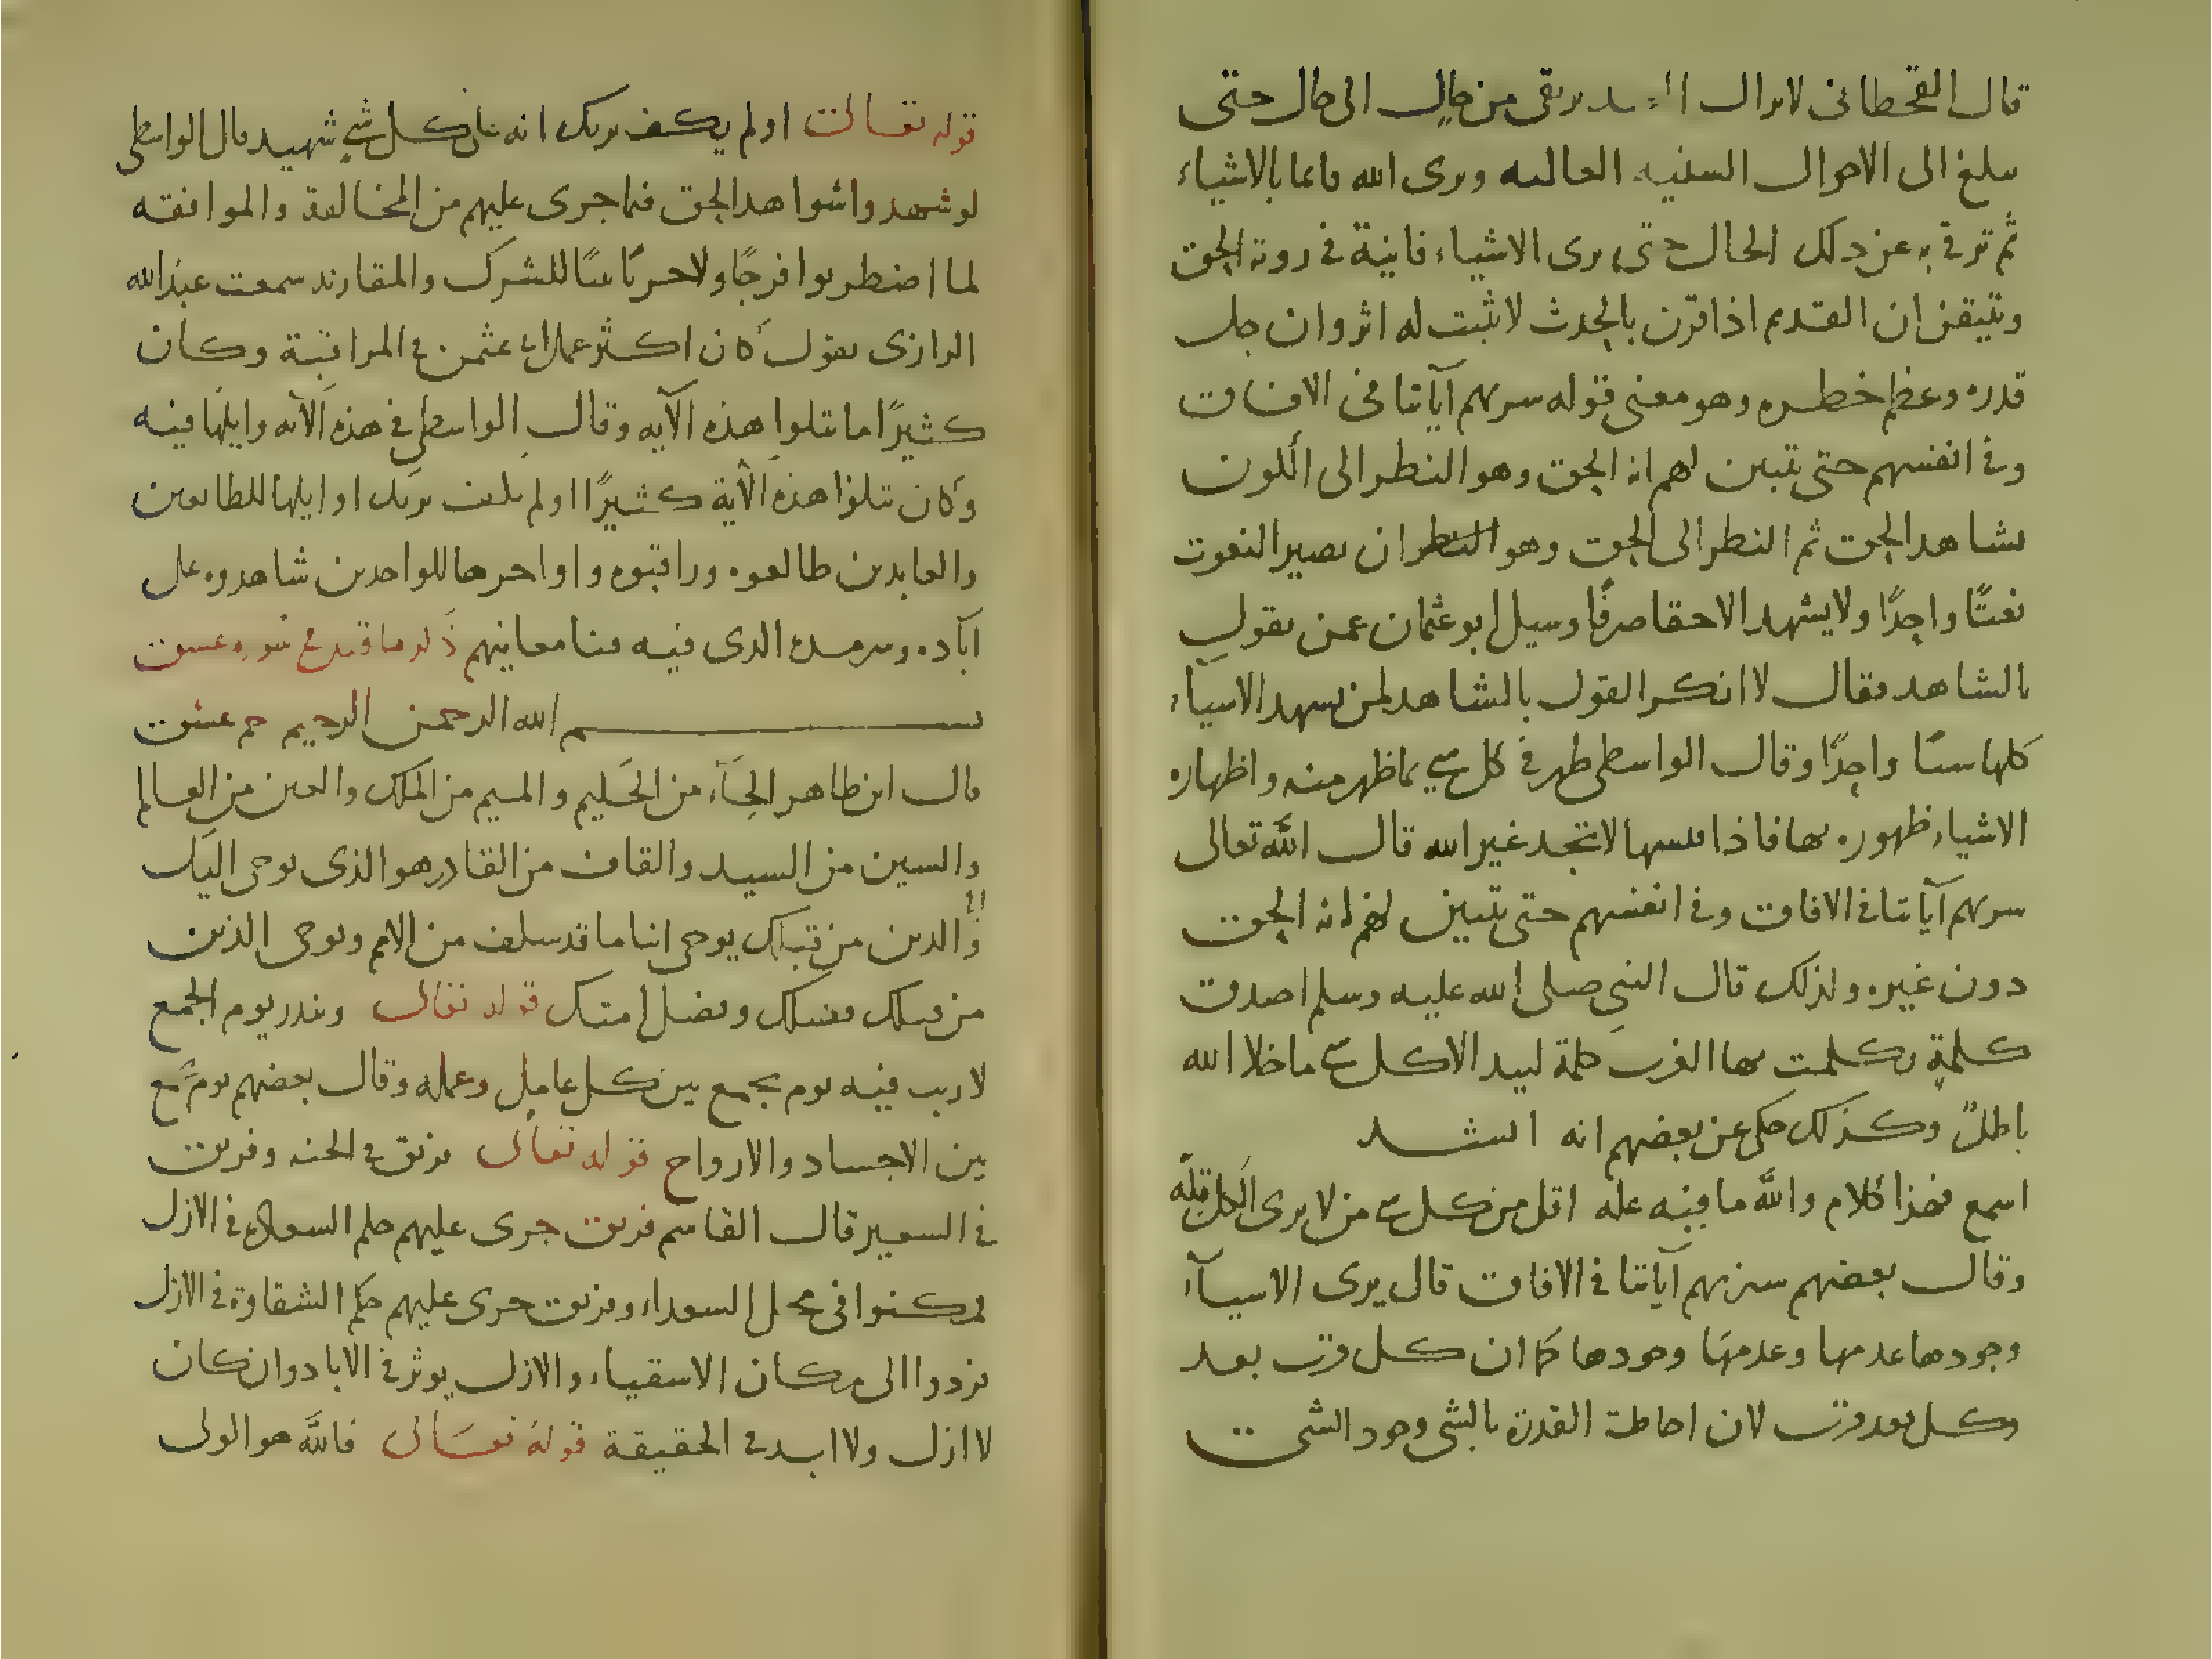 قال القحطانى لا يزال العبد يرتقى من حال الى حال حتى
يبلغ الى الاحوال السنيه العاليه ويرى الله قائما بالاشياء
ثم ترقى به عن ذلك الحال حتى يرى الاشياء فانية فى روية الحق
وتيقن ان القديم اذا قرن بالحدث لا يثبت له اثر وان جل
قدره وعظم خطره وهو معنى قوله سنريهم آياتنا فى الافاق
وفى انفسهم حتى يتبين لهم انه الحق وهو النظر الى الكون
بشاهد الحق ثم النظر الى الحق وهو النظر ان يصير النعوت
نعتًا واحدًا ولا يشهد الا حقا صرفًا وسيل ابو عثمان عمن يقول
بالشاهد فقال لا انكر القول بالشاهد لمن يشهد الاشيآء
كلها شيئا واحدًا وقال الواسطى ظهر فى كل شى بما ظهر منه واظهاره
الاشياء ظهوره بها فاذا فتشها لا تجد غير الله قال اللَّه تعالى
سنريهم آياتنا فى الافاق وفى انفسهم حتى يتبين لهم انه الحق
دون غيره ولذلك قال النبى صلى الله عليه وسلم اصدق
كلمةٍ تكلمت بها العرب كلمة لبيد الا كل شى ما خلا الله
باطلٌ وكذلك حكى عن بعضهم انه انشد
اسمع فهذا كلام واللَّه ما فيه عله اقل من كل شى من لا يرى الكل قلَّه
وقال بعضهم سنريهم آياتنا فى الافاق قال يرى الاشيآء
وجودها عدمها وعدمها وجودها كما ان كل قرب بعد
وكل بعد قرب لان احاطة القدرة بالشى وجود الشى
قوله تعالى اولم يكف بربك انه على كل شى شهيد قال الواسطى
لو شهدوا شواهد الحق فيما جرى عليهم من المخالفة والموافقه
لما اضطربوا فرحًا ولا حزنًا للشرك والمقارنه سمعت عبد الله
الرازى يقول كان اكثر عمل ابى عثمن فى المراقبة وكان
كثيرًا ما يتلوا هذه الآيه وقال الواسطى فى هذه الآيه وايلها فيه
وكان يتلوا هذه الآية كثيرًا اولم يكف بربك اوايلها للطايعين
والعابدين طالعوه وراقبوه واواخرها للواحدين شاهدوه على
آباده وسرمده الذى فيه فنا معانيهم ذكر ما قيل فى سوره عسق
بسم الله الرحمن الرحيم حم عسق
قال ابن طاهر الحآء من الحليم والميم من الملك والعين من العالم
والسين من السيد والقاف من القادر هو الذى يوحى اليك
والى الذين من قبلك يوحى انباما قد سلف من الامم ويوحى الذين
من قبلك فضلك وفضل امتك قوله تعالى وتنذر يوم الجمع
لا ريب فيه يوم يجمع بين كل عامل وعمله وقال بعضهم يوم يجمع
بين الاجساد والارواح قوله تعالى فريق فى الجنه وفريق
فى السعير قال القاسم فريق جرى عليهم حكم السعادة فى الازل
فمكنوا فى محل السعداء وفريق جرى عليهم حكم الشقاوة فى الازل
فردوا الى مكان الاشقياء والازل يوثر فى الاباد وان كان
لا ازل ولا ابد فى الحقيقة قوله تعالى فاللَّه هو الولى